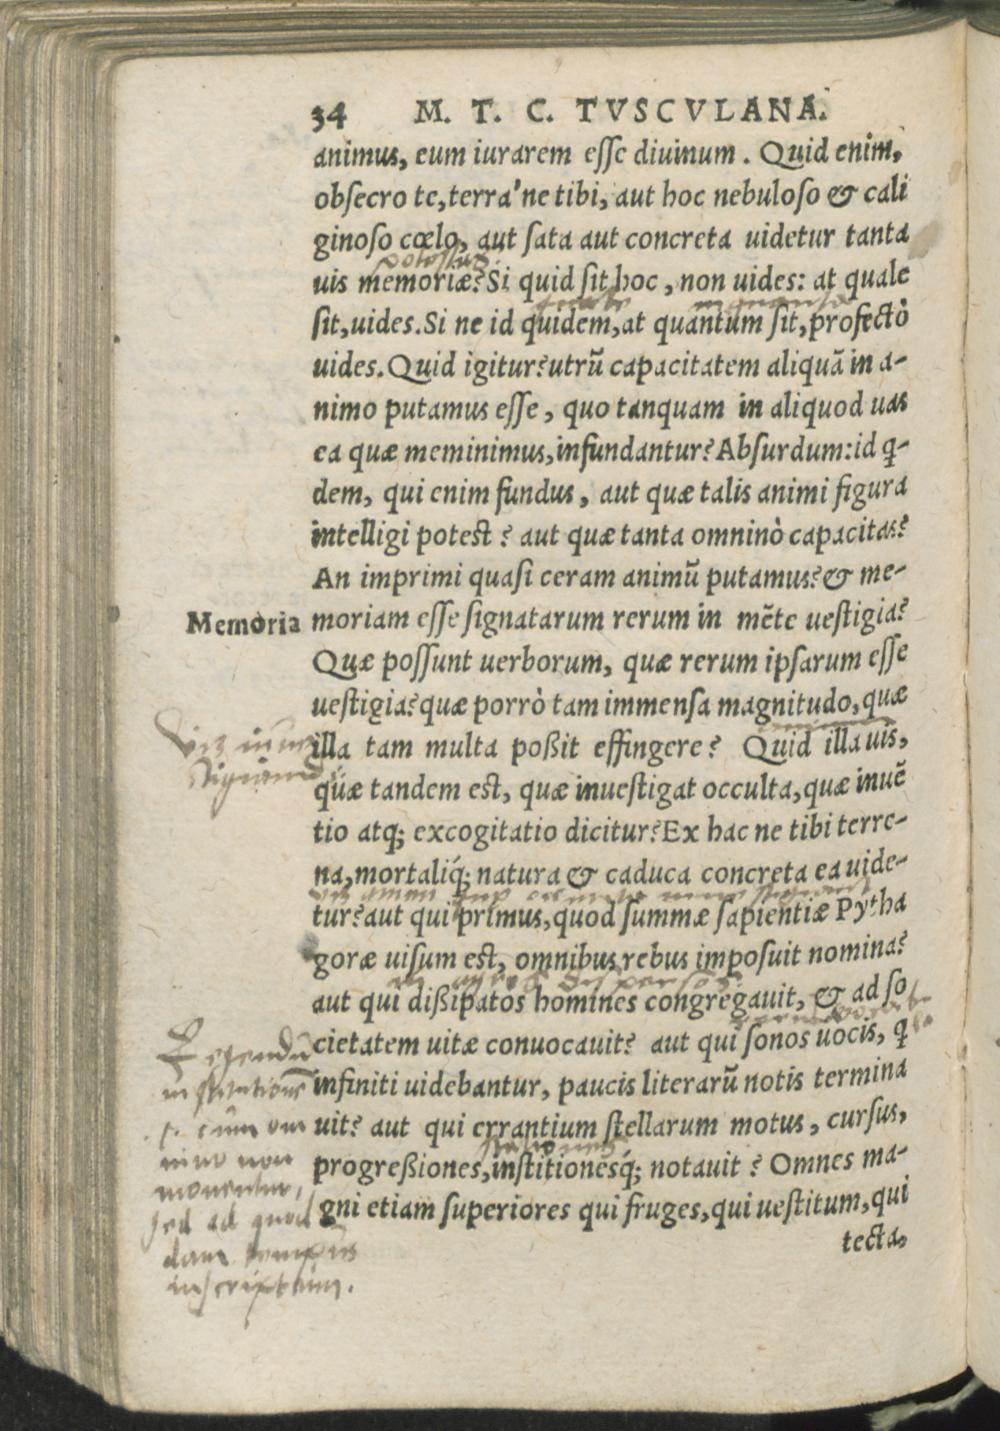 34 M. T. C. TVSCVLANA.
animus, eum iurarem esse diuinum. Quid enim,
obsecro te, terra'ne tibi, aut hoc nebuloso & cali
ginoso cœlo, aut sata aut concreta uidetur tanta
potestas
uis memoriæ? Si quid sit hoc, non uides: at quale
sit, uides. Si ne id quidem, at quantum sit, profectò
uides. Quid igitur? utrũ capacitatem aliquã in a-
nimo putamus esse, quo tanquam in aliquod uas
ea quæ meminimus, infundantur? Absurdum: id q-
dem, qui enim fundus, aut quæ talis animi figura
intelligi potest? aut quæ tanta omninò capacitas?
An imprimi quasi ceram animũ putamus? & me-
Memoria moriam esse signatarum rerum in mẽte uestigia?
Quæ possunt uerborum, quæ rerum ipsarum esse
uestigia? quæ porrò tam immensa magnitudo, quæ
illa tam multa poßit effingere? Quid illa uis,
quæ tandem est, quæ inuestigat occulta, quæ inuẽ
tio atq; excogitatio dicitur? Ex hac ne tibi terre-
na, mortaliq́; natura & caduca concreta ea uide-
tur? aut qui primus, quod summæ sapientiæ Pytha
goræ uisum est, omnibus rebus imposuit nomina?
in agris dispersos
aut qui dißipatos homines congregauit, & ad so
cietatem uitæ conuocauit? aut qui sonos uocis, q
infiniti uidebantur, paucis literarũ notis termina
uit? aut qui errantium stellarum motus, cursus,
stationes
progreßiones, institionesq́; notauit? Omnes ma-
gni etiam superiores qui fruges, qui uestitum, qui
tecta,
non
mouentur,
sed ad quod
dam tempus